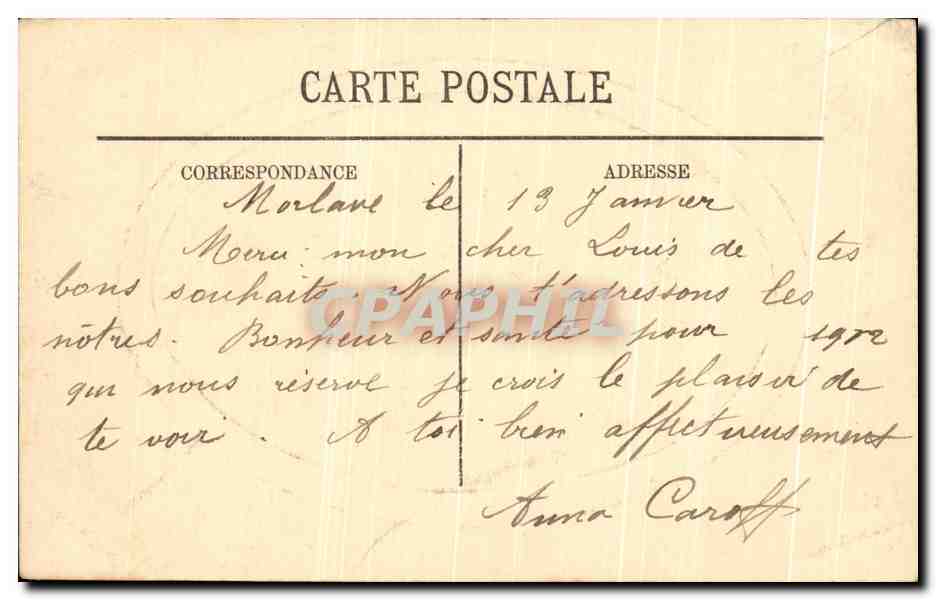 CARTE POSTALE
CORRESPONDANCE ADRESSE
Morlane le 13 Janvier
Merci mon cher Louis de tes
bons souhaits. Nous t'adressons les
nôtres. Bonheur et santé pour 1912
qui nous réserve je crois le plaisir de
te voir. A toi bien affectueusement
Anna Caroff
CPAPHIL